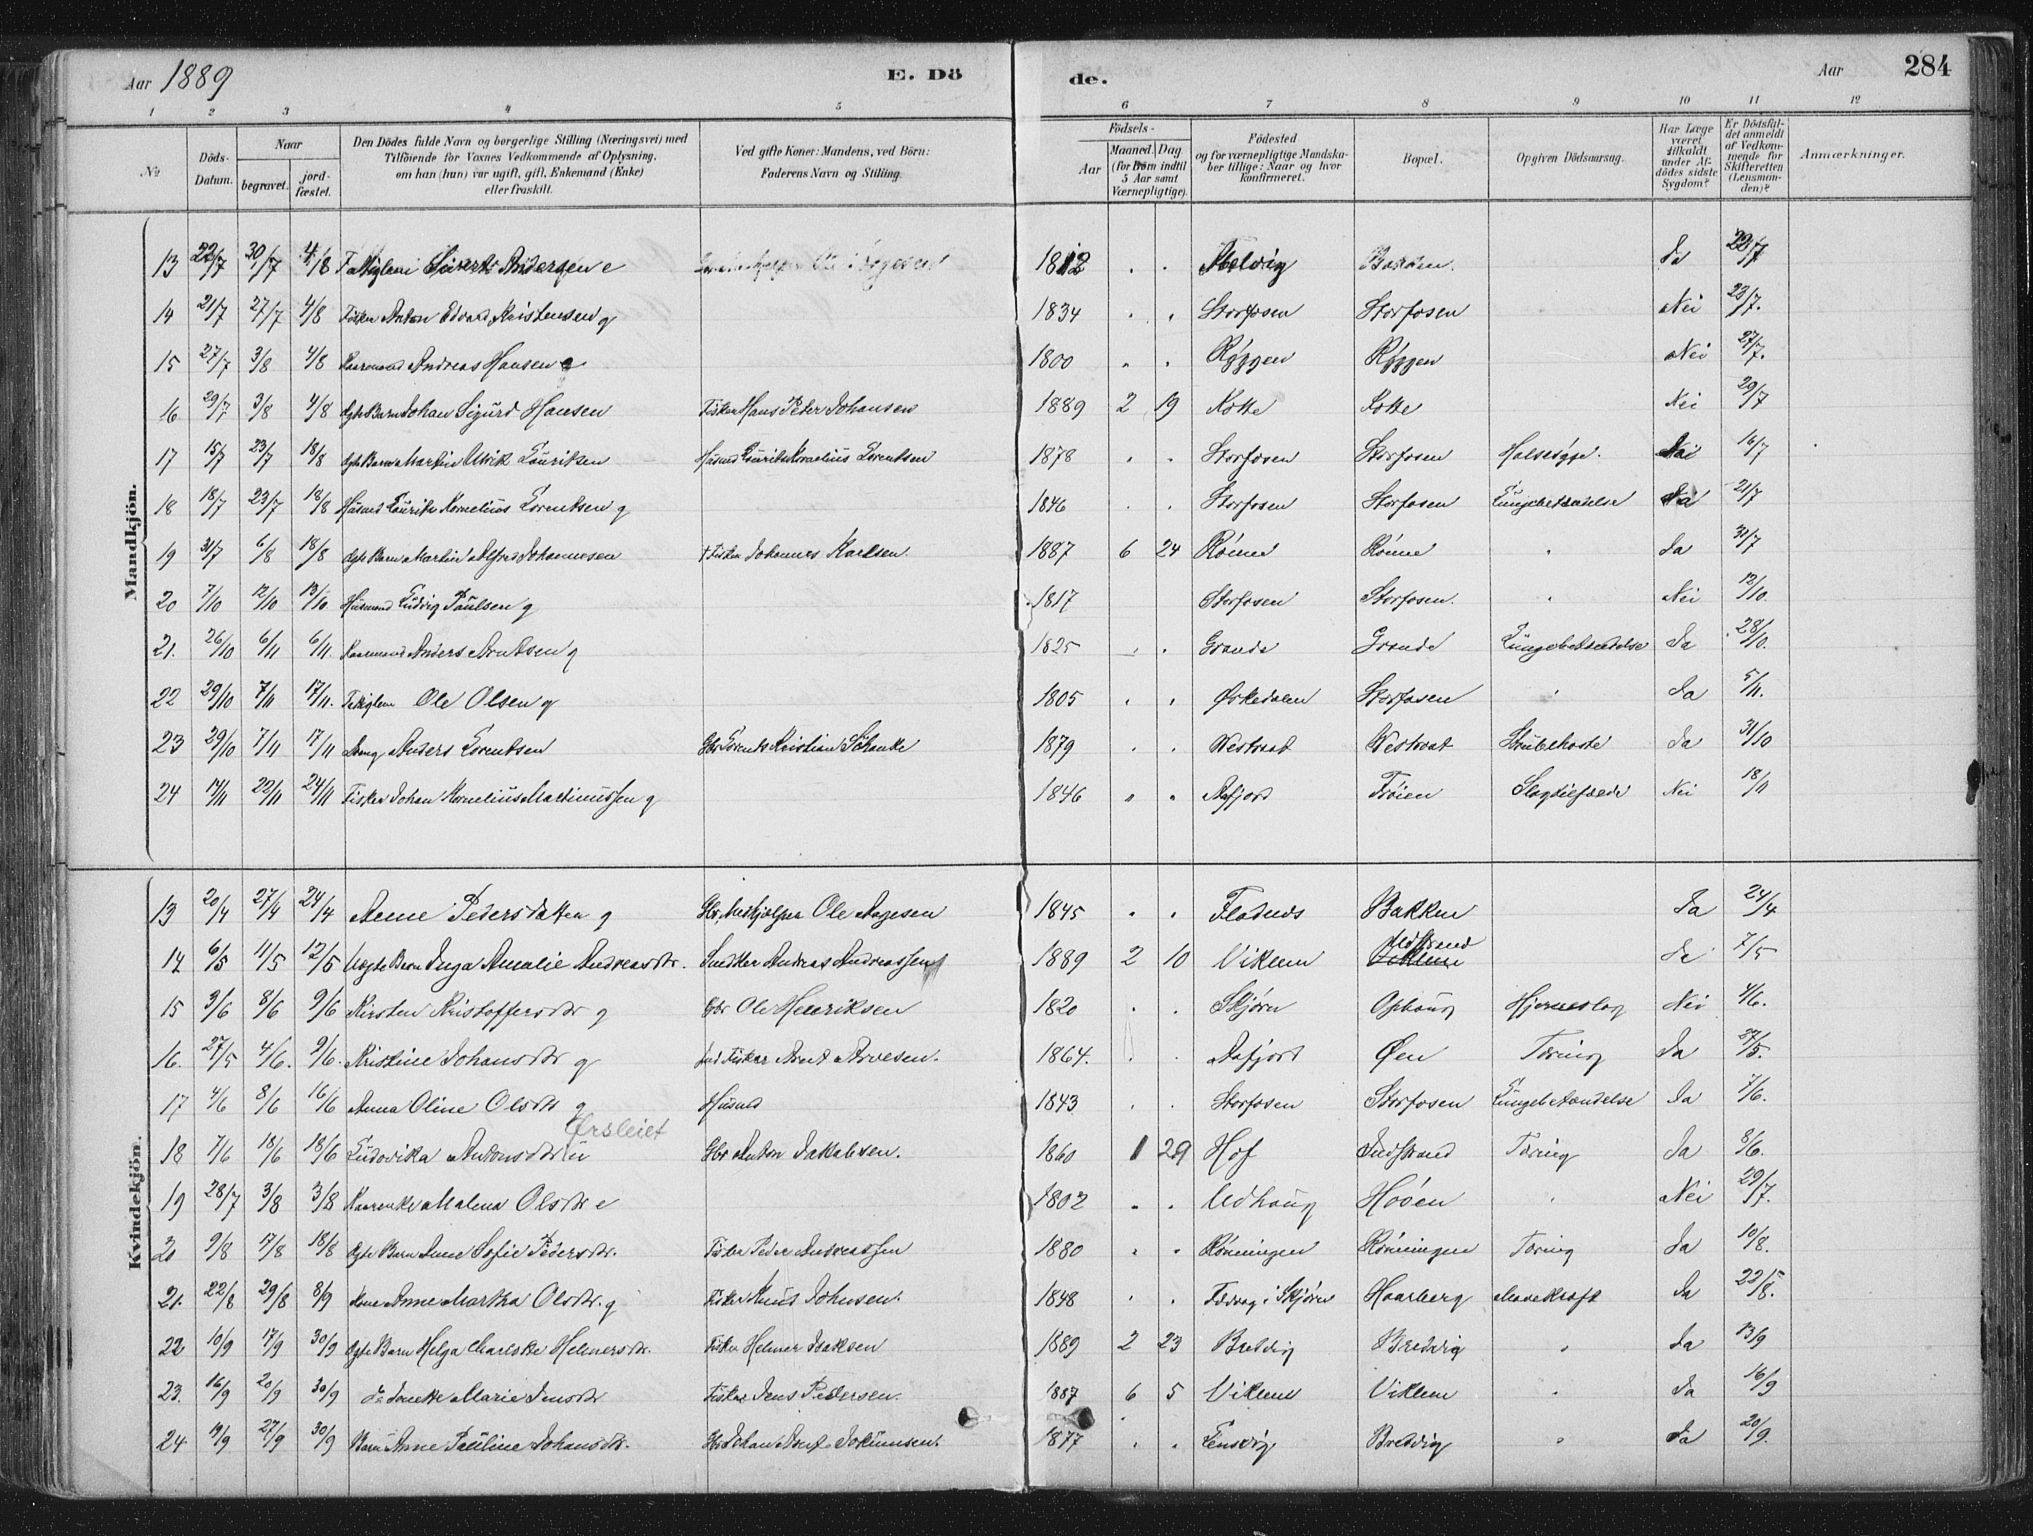 Aar 1889 E. Dö de. Aar 284
1 2 3 4 5 6 7 8 9 10 11 12
№ Döds-Datum. Naar begravet. jordfæstet. Den Dödes fulde Navn og borgerlige Stilling (Næringsvei) med Tilföiende for Voxnes Vedkommende af Oplysning, om han (hun) var ugift, gift, Enkemand (Enke) eller fraskilt. Ved gifte Koner: Mandens, ved Börn: Faderens Navn og Stilling. Födsels- Aar Maaned. Dag. (for Börn indtil 5 Aar samt Værnepligtige). Födested og for værnepligtige Mandskaber tillige: Naar og hvor konfirmeret. Bopæl. Opgiven Dödsaarsag. Har Læge været tilkaldt under Afdödes sidste Sygdom? Er Dödsfaldet anmeldt af Vedkommende for Skifteretten (Lensmanden)? Anmærkninger.
Mandkjön.
13 22/7 30/7 4/8 Sivert Andersen e 1812 . . Bakken. Ja 22/7
14 21/7 27/7 4/8 Fisker Anton Edvard Kristensen g 1834 . . Storfosen Storfosen Nei 23/7.
15 27/7 3/8 4/8 Kaarmand Andreas Hansen e 1800 . . Ryggen Ryggen Nei 27/7.
16 29/7 3/8 4/8 Ægte Barn Johan Sigurd Hansen Fisker Hans Peter Johansen 1889 2 19 Kotte Kotte Nei 29/7
17 15/7 23/7 18/8 Ægte Barn Martin Ulrik Lauriksen Husmd Laurits Kornelius Lorentsen 1878 . . Storfosen Storfosen Halssyge. Nei 16/7
18 18/7 23/7 18/8 Husmd Laurits Kornelius Lorentsen g 1846 . . Storfosen Storfosen Lungebetændelse Ja 21/7
19 31/7 6/8 18/8 Ægte Barn Martin Alfred Johannesen Fisker Johannes Karlsen 1887 6 24 Rönne Rönne " Ja 31/7
20 7/10 12/10 13/10 Husmand Ludvig Paulsen g 1817 Storfosen Storfosen. " Nei 12/10.
21. 26/10 6/11 6/11. Kaarmand Anders Arntsen g 1825 . . Grande Grande Lungebetændelse Ja 28/10.
22 29/10 7/11 17/11. Ole Olsen g 1805 . . Ørkedalen Storfosen " Ja 5/11.
23 29/10 7/11 17/11 Dreng Anders Lorentsen Gbr Lorents Kristian Schanke 1879 . . Westraat Westraat Strubehoste Ja 31/10
24 14/11 22/11 24/11 Fisker Johan Kornelius Martinussen g 1846 . . Aafjord Tröien Slagtilfælde Nei 18/11
Kvindekjön.
13 20/4 27/4 24/4 Anne Pedersdatter g Gbr, Medhjælper Ole Aagesen 1845 . . Fladnes Bakken Ja 24/4
Indstrand
14 6/5 11/5 12/5 Uægte Barn Inga Amalie Andreasdtr. Snedker Andreas Andreassen 1889 2 10 Viklem Viklem Ja 7/5
15 3/6 8/6 9/6 Kirsten Kristoffersdtr g Gbr Ole Henriksen 1820 . . Skjörn Ophaug Hjerneslag Nei 4/6.
16. 27/5 4/6. 9/6. Kristine Johansdtr g Fisker Arnt Arnesen. 1864. . . Aafjord Øen Tæring Ja 27/5.
17 4/6 8/6 16/6 Anna Oline Olsdtr g Husmd 1843 . . Storfosen Storfosen Lungebetændelse Ja 7/6.
Ørsleiet
18 7/6 18/6 18/6 Ludovika Antonsdtr u Gbr Anton Jakobsen. 1860 1 29 Hof Indstrand Tæring Ja 8/6.
19 28/7 3/8 3/8 Malena Olsdtr e 1802 . . Udhaug Hööen " Nei 29/7.
20 9/8 17/8 18/8 Ægte Barn Anne Sofie Pedersdtr. Fisker Peder Andreassen 1880 . . Rönningen Rönningen Tæring Ja 10/8.
21. 22/8 29/8 8/9 Kone Anne Martha Olsdtr. g Fisker Knud Johnsen. 1848 . . i Skjörn Haarberg Mavekræft Ja 22/8.
22 10/9 17/9 30/9 Ægte Barn Helga Charlotte Helmersdtr. Fisker Helmer Isaksen 1889 2 23 Bredvig Bredvig " Ja 13/9
23. 16/9 20/9 30/9 do Jonette Marie Jensdtr Fisker Jens Pedersen. 1887 6 5 Viklem Viklem " Ja 16/9
24 19/9 27/9 30/9 Barn Anne Pauline Johansdtr. Gbr Johan Arnt Jokumsen. 1877 . . Lensvig Bredvig " Ja 20/9.